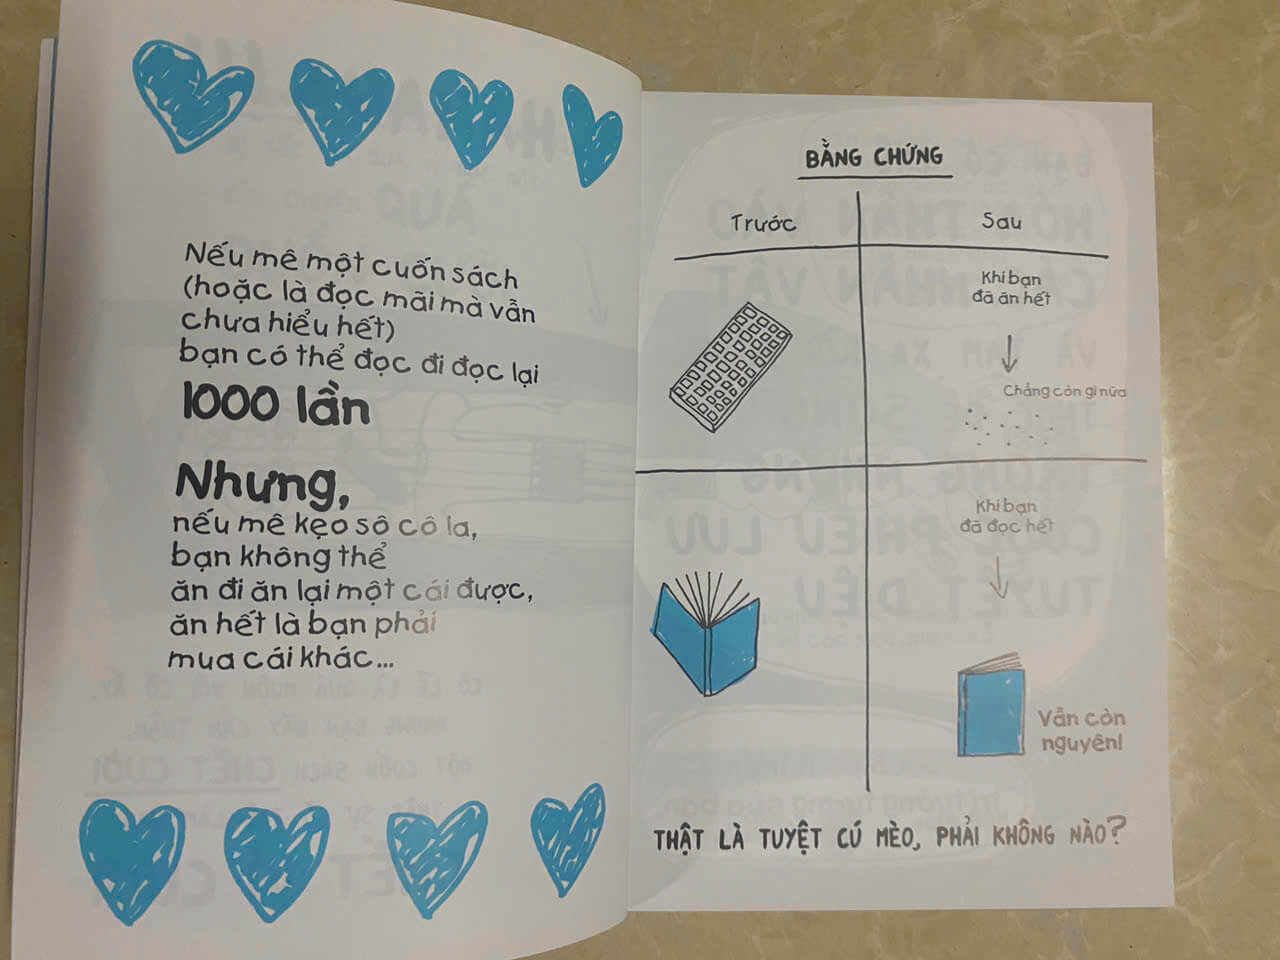 Nếu mê một cuốn sách
(hoặc là đọc mãi mà vẫn
chưa hiểu hết)
bạn có thể đọc đi đọc lại
1000 lần
Nhưng,
nếu mê kẹo sô cô la,
bạn không thể
ăn đi ăn lại một cái được,
ăn hết là bạn phải
mua cái khác...
BẰNG CHỨNG
Trước
Sau
Khi bạn
đã ăn hết
Chẳng còn gì nữa
Khi bạn
đã đọc hết
Vẫn còn
nguyên!
THẬT LÀ TUYỆT CÚ MÈO, PHẢI KHÔNG NÀO?